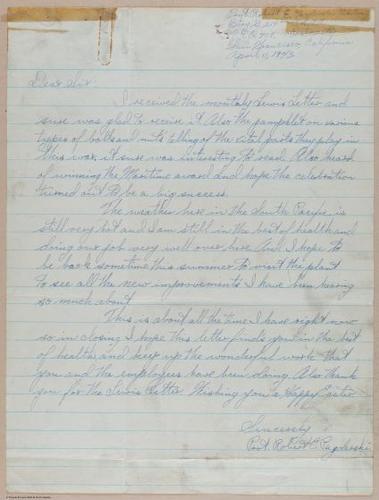 San Francisco, California
April 11, 1943
Dear Sir:
I received the monthly Lewis Letter and
sure was glad to receive it. Also the pamphlet on various
types of bolts and nuts telling of the vital parts they play in
this war, it sure was interesting to read. Also heard
of winning the Maritime award and hope the celebration
turned out to be a big success.
The weather here in the South Pacific is
still very hot and I am still in the best of health and
doing our job very well over here. And I hope to
be back sometime this summer to visit the plant
to see all the new improvements I have been hearing
so much about.
This is about all the time I have right now
so in closing I hope this letter finds you in the best
of health and keep up the wonderful work that
you and the employees have been doing. Also thank
you for the Lewis Letter. Wishing you a Happy Easter
Sincerely
Pvt. Robert C.